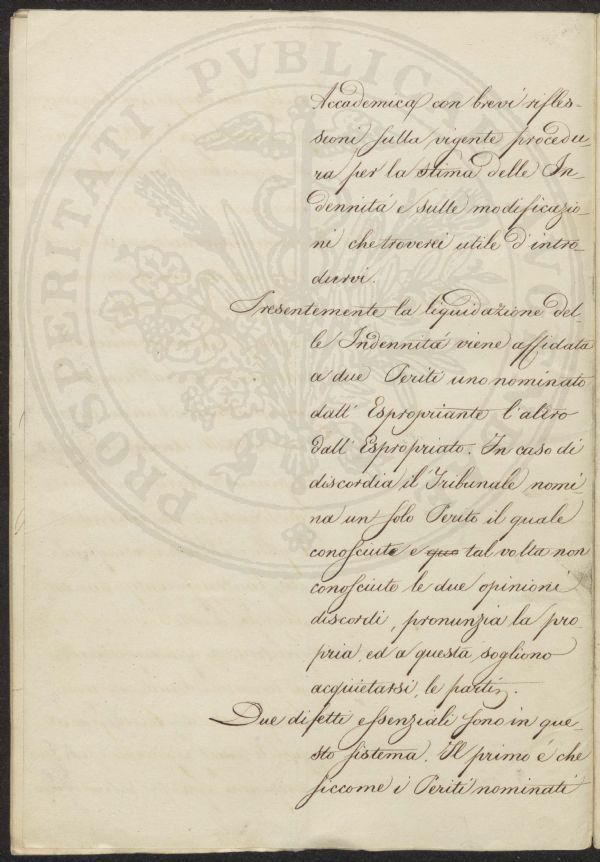 Accademica con brevi rifles-
sioni sulla vigente procedu-
ra per la stima delle In-
dennitá e sulle modificazio-
ni che troverei utile d'intro-
durvi.
Presentemente la liquidazione del-
le Indennitá viene affidata
a due Periti uno nominato
dall' Espropriante l'altro
dall' Espropriato. In caso di
discordia il Tribunale nomi-
na un solo Perito il quale
conosciute e que tal volta non
conosciute le due opinioni
discordi, pronunzia la pro
pria, ed a questa sogliono
acquietarsi le parti.
Due difetti essenziali sono in que-
sto sistema. Il primo é che
siccome i Periti nominati
PROSPERITATI PVBLICAE